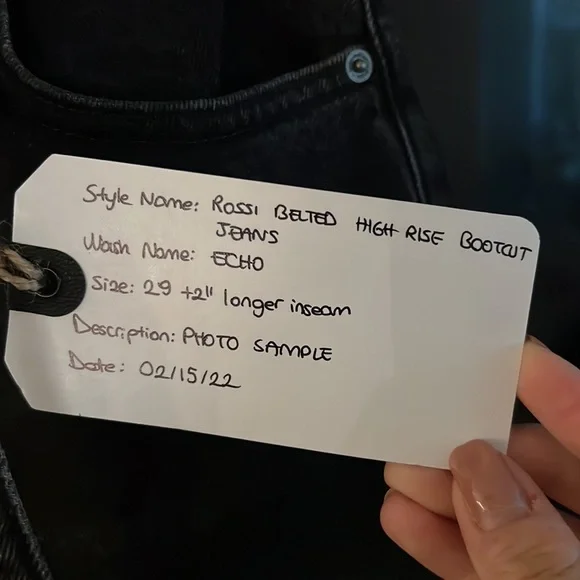 Style Name: ROSSI BELTED HIGH-RISE BOOTCUT
JEANS
Wash Name: ECHO
Size: 29 +2" longer inseam
Description: PHOTO SAMPLE
Date: 02/15/22